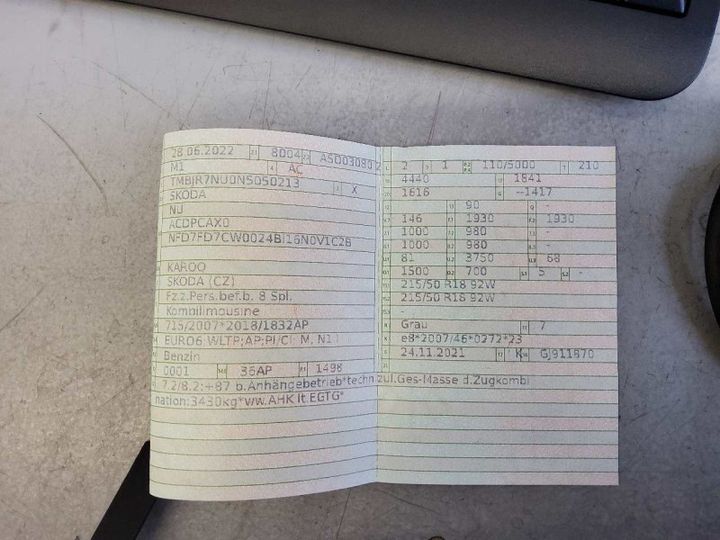 28.06.2022 8004 ASD03080 2
M1 4 AC
TMBJR7NU0N5050213 X
SKODA
NU
ACDPCAX0
NFD7FD7CW0024BI16N0V1C2B
KAROQ
SKODA (CZ)
Fz.z.Pers.bef.b. 8 Spl.
Kombilimousine
715/2007*2018/1832AP
EURO6;WLTP;AP;PI/CI; M, N1 I
Benzin
0001 36AP 1498
7.2/8.2:+87 b.Anhängebetrieb*techn.zul.Ges-Masse d.Zugkombi
nation:3430kg*ww.AHK lt.EGTG*
2 1 110/5000 210
4440 1841
1616 --1417
90 -
146 1930 1930
1000 980 -
1000 980 -
81 3750 68
1500 700 5 -
215/50 R18 92W
215/50 R18 92W
-
Grau 7
e8*2007/46*0272*23
24.11.2021 K GJ911870